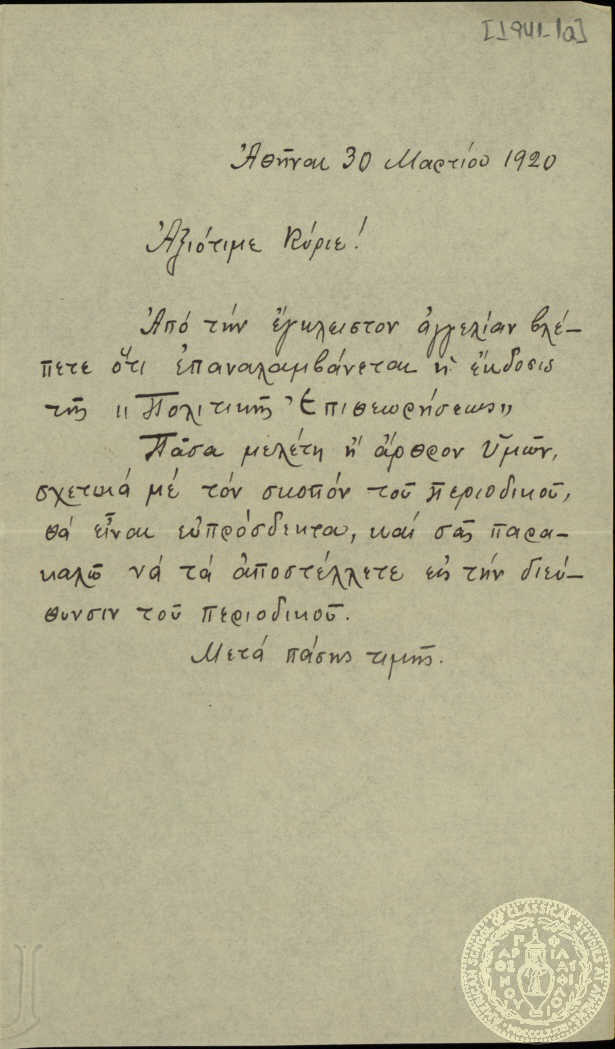 [1941-1a]
Ἀθῆναι 30 Μαρτίου 1920
Ἀξιότιμε Κύριε!
Ἀπό τήν ἔγκλειστον ἀγγελίαν βλέ-
πετε ὅτι ἐπαναλαμβάνεται ἡ ἔκδοσις
τῆς „Πολιτικῆς Ἐπιθεωρήσεως„
Πᾶσα μελέτη ἤ ἄρθρον Ὑμῶν,
σχετικά μέ τόν σκοπόν τοῦ περιοδικοῦ,
θά εἶναι εὐπρόσδεκτα, καί σᾶς παρα-
καλῶ νά τά ἀποστέλλετε εἰς τήν διεύ-
θυνσιν τοῦ περιοδικοῦ.
Μετά πάσης τιμῆς.
AMERICAN SCHOOL OF CLASSICAL STUDIES AT ATHENS